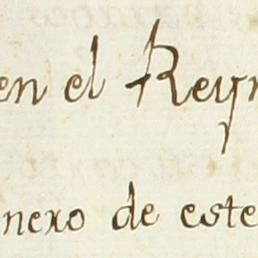 en el Reyn
nero de este